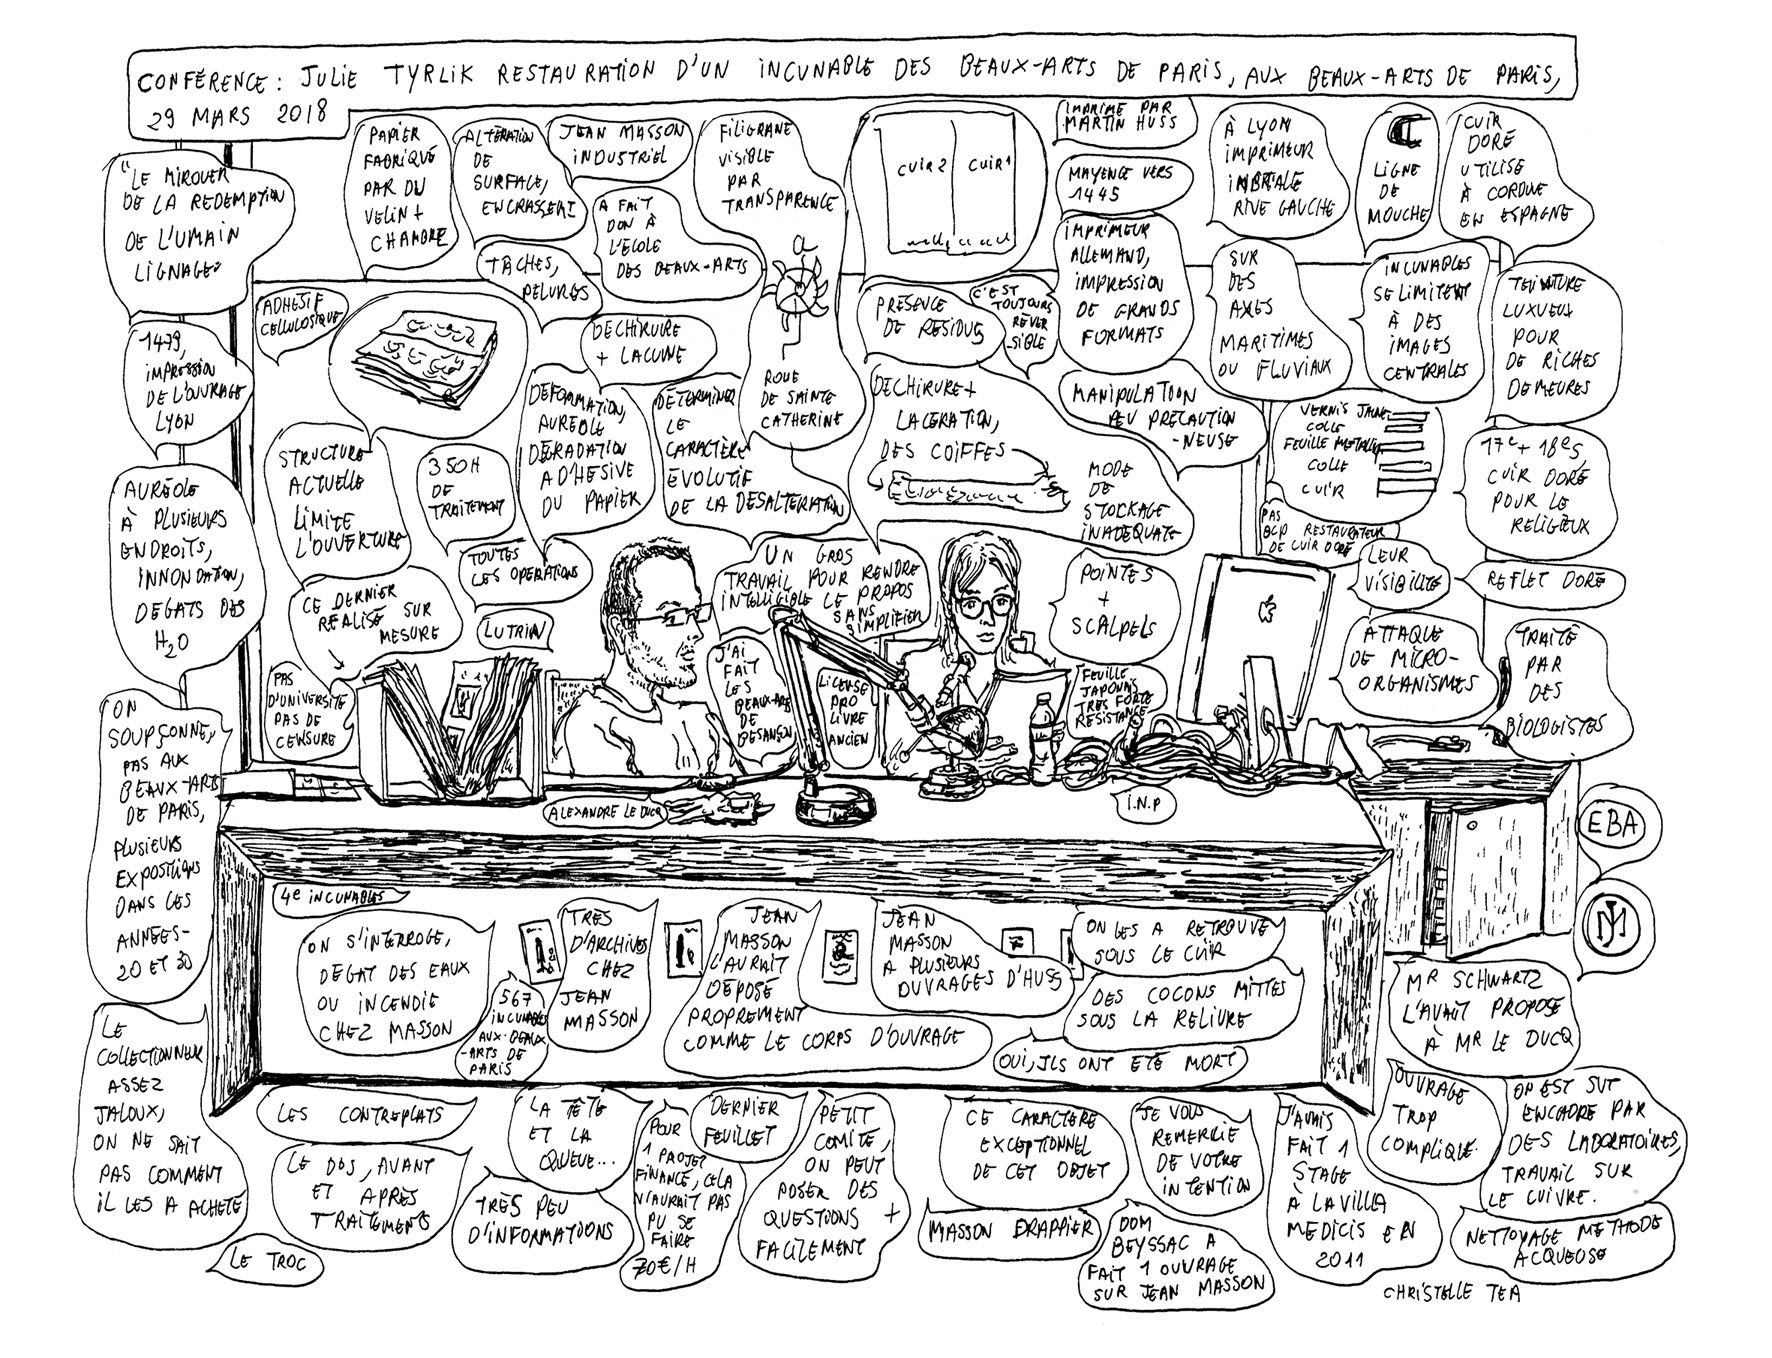 CONFÉRENCE : JULIE TYRLIK RESTAURATION D'UN INCUNABLE DES BEAUX-ARTS DE PARIS, AUX BEAUX-ARTS DE PARIS,
29 MARS 2018
"LE MIROUER
DE LA REDEMPTION
DE L'UMAIN
LIGNAGE"
PAPIER
FABRIQUÉ
PAR DU
VELIN +
CHAMBRE
ALTÉRATION
DE
SURFACE,
JEAN MASSON
INDUSTRIEL
A FAIT
DON À
L'ÉCOLE
DES BEAUX-ARTS
FILIGRANE
VISIBLE
PAR
TRANSPARENCE
CUIR 2
CUIR 1
IMPRIMÉ PAR
MARTIN HUSS
MAYENCE VERS
1445
IMPRIMEUR
ALLEMAND,
IMPRESSION
DE GRANDS
FORMATS
À LYON
IMPRIMEUR
RIVE GAUCHE
LIGNE
DE
MOUCHE
CUIR
DORÉ
UTILISÉ
À CORDUE
EN ESPAGNE
TÂCHES,
PELURES
ADHÉSIF
CELLULOSIQUE
1479,
IMPRESSION
DE L'OUVRAGE
LYON
DECHIRURE
+ LACUNE
ROUE
DE SAINTE
CATHERINE
PRÉSENCE
DE RESIDUS
C'EST
TOUJOURS
RÉVER
SIBLE
SUR
DES
AXES
MARITIMES
OU FLUVIAUX
INCUNABLES
SE LIMITENT
À DES
IMAGES
CENTRALES
TENTURE
LUXUEUX
POUR
DE RICHES
DEMEURES
STRUCTURE
ACTUELLE
LIMITE
L'OUVERTURE
350H
DE
TRAITEMENT
DEFORMATION,
AURÉOLE
DÉGRADATION
ADHESIVE
DU PAPIER
DÉTERMINER
LE
CARACTÈRE
ÉVOLUTIF
DE LA DESALTERATION
DECHIRURE +
LACERATION,
DES COIFFES
MODE
DE
STOCKAGE
INADEQUATE
MANIPULATION
PEU PRÉCAUTION
-NEUSE
VERNIS JAUNE
COLLE
FEUILLE METALLIQ
COLLE
CUIR
17e + 18e S,
CUIR DORÉ
POUR LE
RELIGIEUX
PAS
BCP RESTAURATEUR
DE CUIR DORÉ
AURÉOLE
À PLUSIEURS
ENDROITS,
INNONDATION,
DEGATS DES
H2O
TOUTES
LES OPERATIONS
CE DERNIER
RÉALISÉ SUR
MESURE
LUTRIN
UN GROS
TRAVAIL POUR RENDRE
INTELLIGIBLE LE PROPOS
SANS
SIMPLIFIER
POINTES
+
SCALPELS
LEUR
VISIBILITÉ
REFLET DORÉ
ATTAQUE
DE MICRO-
ORGANISMES
TRAITÉ
PAR
DES
BIOLOGISTES
PAS
D'UNIVERSITÉ
PAS DE
CENSURE
J'AI
FAIT
LES
BEAUX-ARTS
DE
BESANÇON
LICENSE
PRO
LIVRE
ANCIEN
FEUILLE
JAPONAIS
TRES FORTE
RESISTANCE
ON
SOUPÇONNE,
PAS AUX
BEAUX-ARTS
DE PARIS,
PLUSIEURS
EXPOSITIONS
DANS LES
ANNÉES-
20 ET 30
ALEXANDRE LE DUCQ
I.N.P
EBA
JM
4e INCUNABLES
ON S'INTERROGE,
DEGAT DES EAUX
OU INCENDIE
CHEZ MASSON
567
INCUNABLES
AUX-BEAUX-
-ARTS DE
PARIS
TRES
D'ARCHIVES
CHEZ
JEAN
MASSON
JEAN
MASSON
L'AURAIT
DÉPOSÉ
PROPREMENT
COMME LE CORPS D'OUVRAGE
JEAN
MASSON
A PLUSIEURS
OUVRAGES D'HUSS
ON LES A RETROUVÉ
SOUS LE CUIR
DES COCONS MITTES
SOUS LA RELIURE
OUI, ILS ONT ETÉ MORT
MR SCHWARTZ
L'AVAIT PROPOSÉ
À MR LE DUCQ
LE
COLLECTIONNEUR
ASSEZ
JALOUX,
ON NE SAIT
PAS COMMENT
IL LES A ACHETÉ
LE TROC
LES CONTREPLATS
LE DOS, AVANT
ET APRÈS
TRAITEMENTS
LA TÊTE
ET LA
QUEUE...
TRÈS PEU
D'INFORMATIONS
POUR
1 PROJET
FINANCÉ, CELA
N'AURAIT PAS
PU SE
FAIRE
70€/H
DERNIER
FEUILLET
PETIT
COMITÉ,
ON PEUT
POSER DES
QUESTIONS +
FACILEMENT
CE CARACTERE
EXCEPTIONNEL
DE CET OBJET
MASSON DRAPPIER
JE VOUS
REMERCIE
DE VOTRE
INTENTION
DOM
BEYSSAC A
FAIT 1 OUVRAGE
SUR JEAN MASSON
J'AVAIS
FAIT 1
STAGE
À LA VILLA
MEDICIS EN
2011
OUVRAGE
TROP
COMPLIQUÉ.
ON EST SUT
ENCADRÉ PAR
DES LABORATOIRES,
TRAVAIL SUR
LE CUIVRE.
NETTOYAGE METHODE
ACQUEUSE
CHRISTELLE TEA